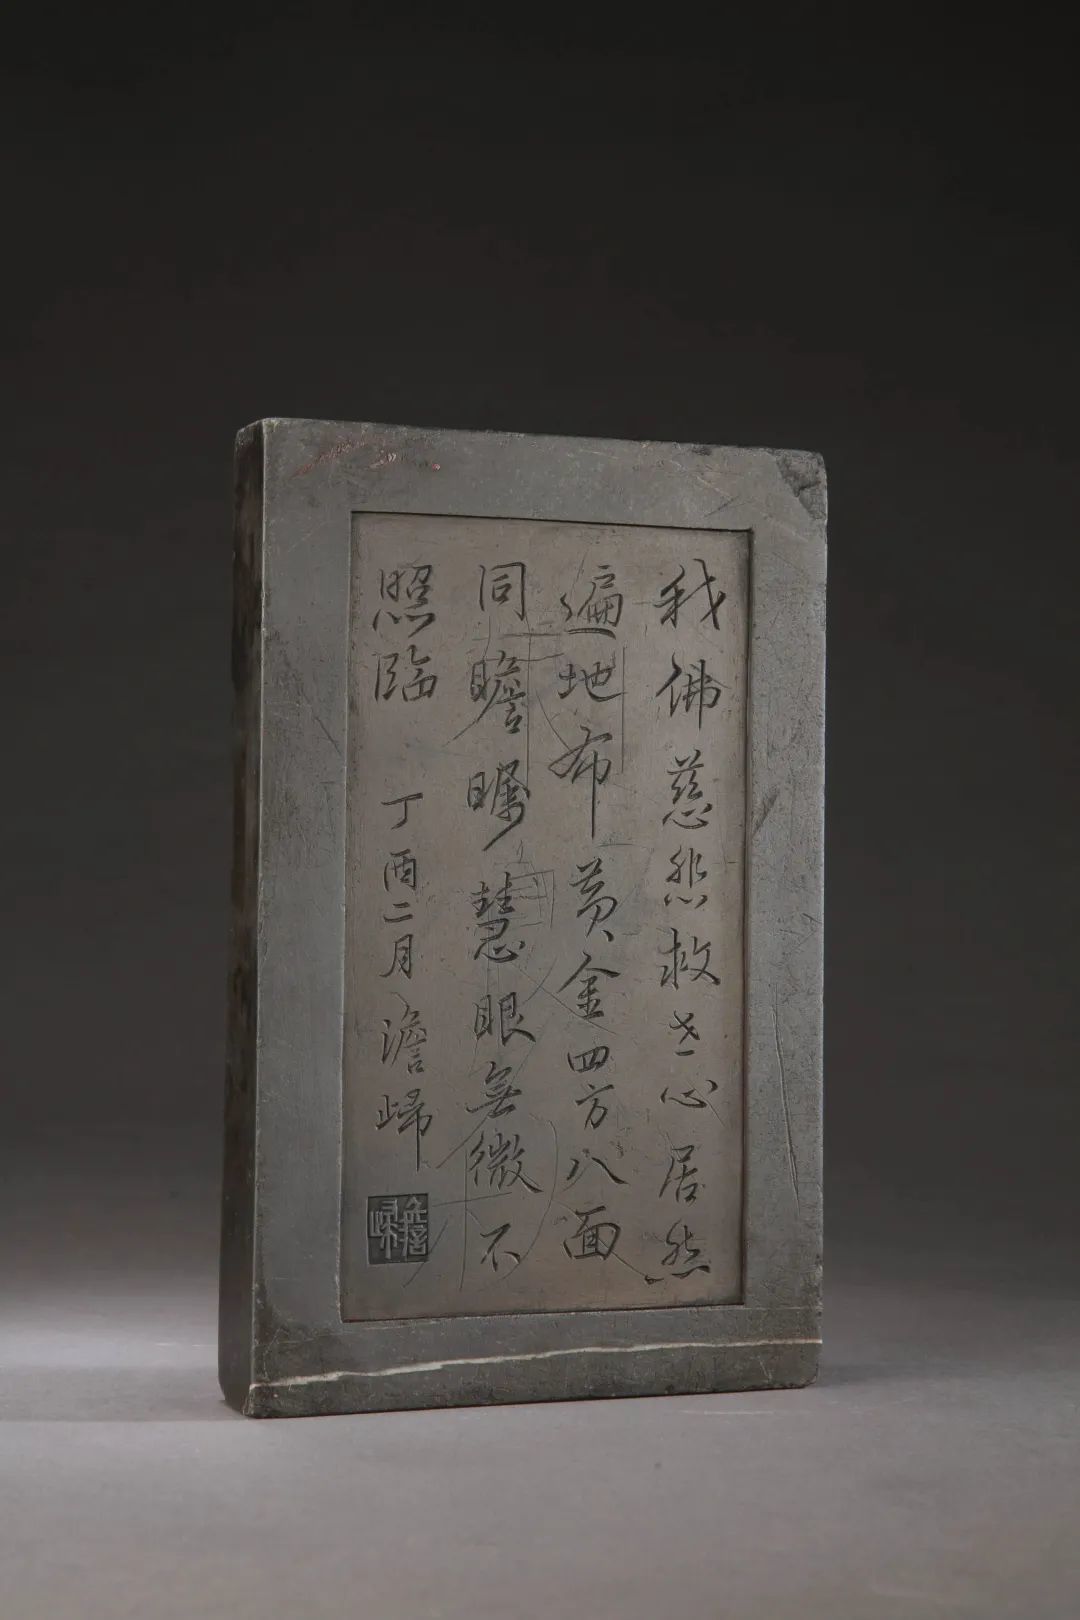 我佛慈悲救世心居然
遍地布黃金四方八面
同瞻矚慧眼無微不
照臨
丁酉二月澹歸
澹歸